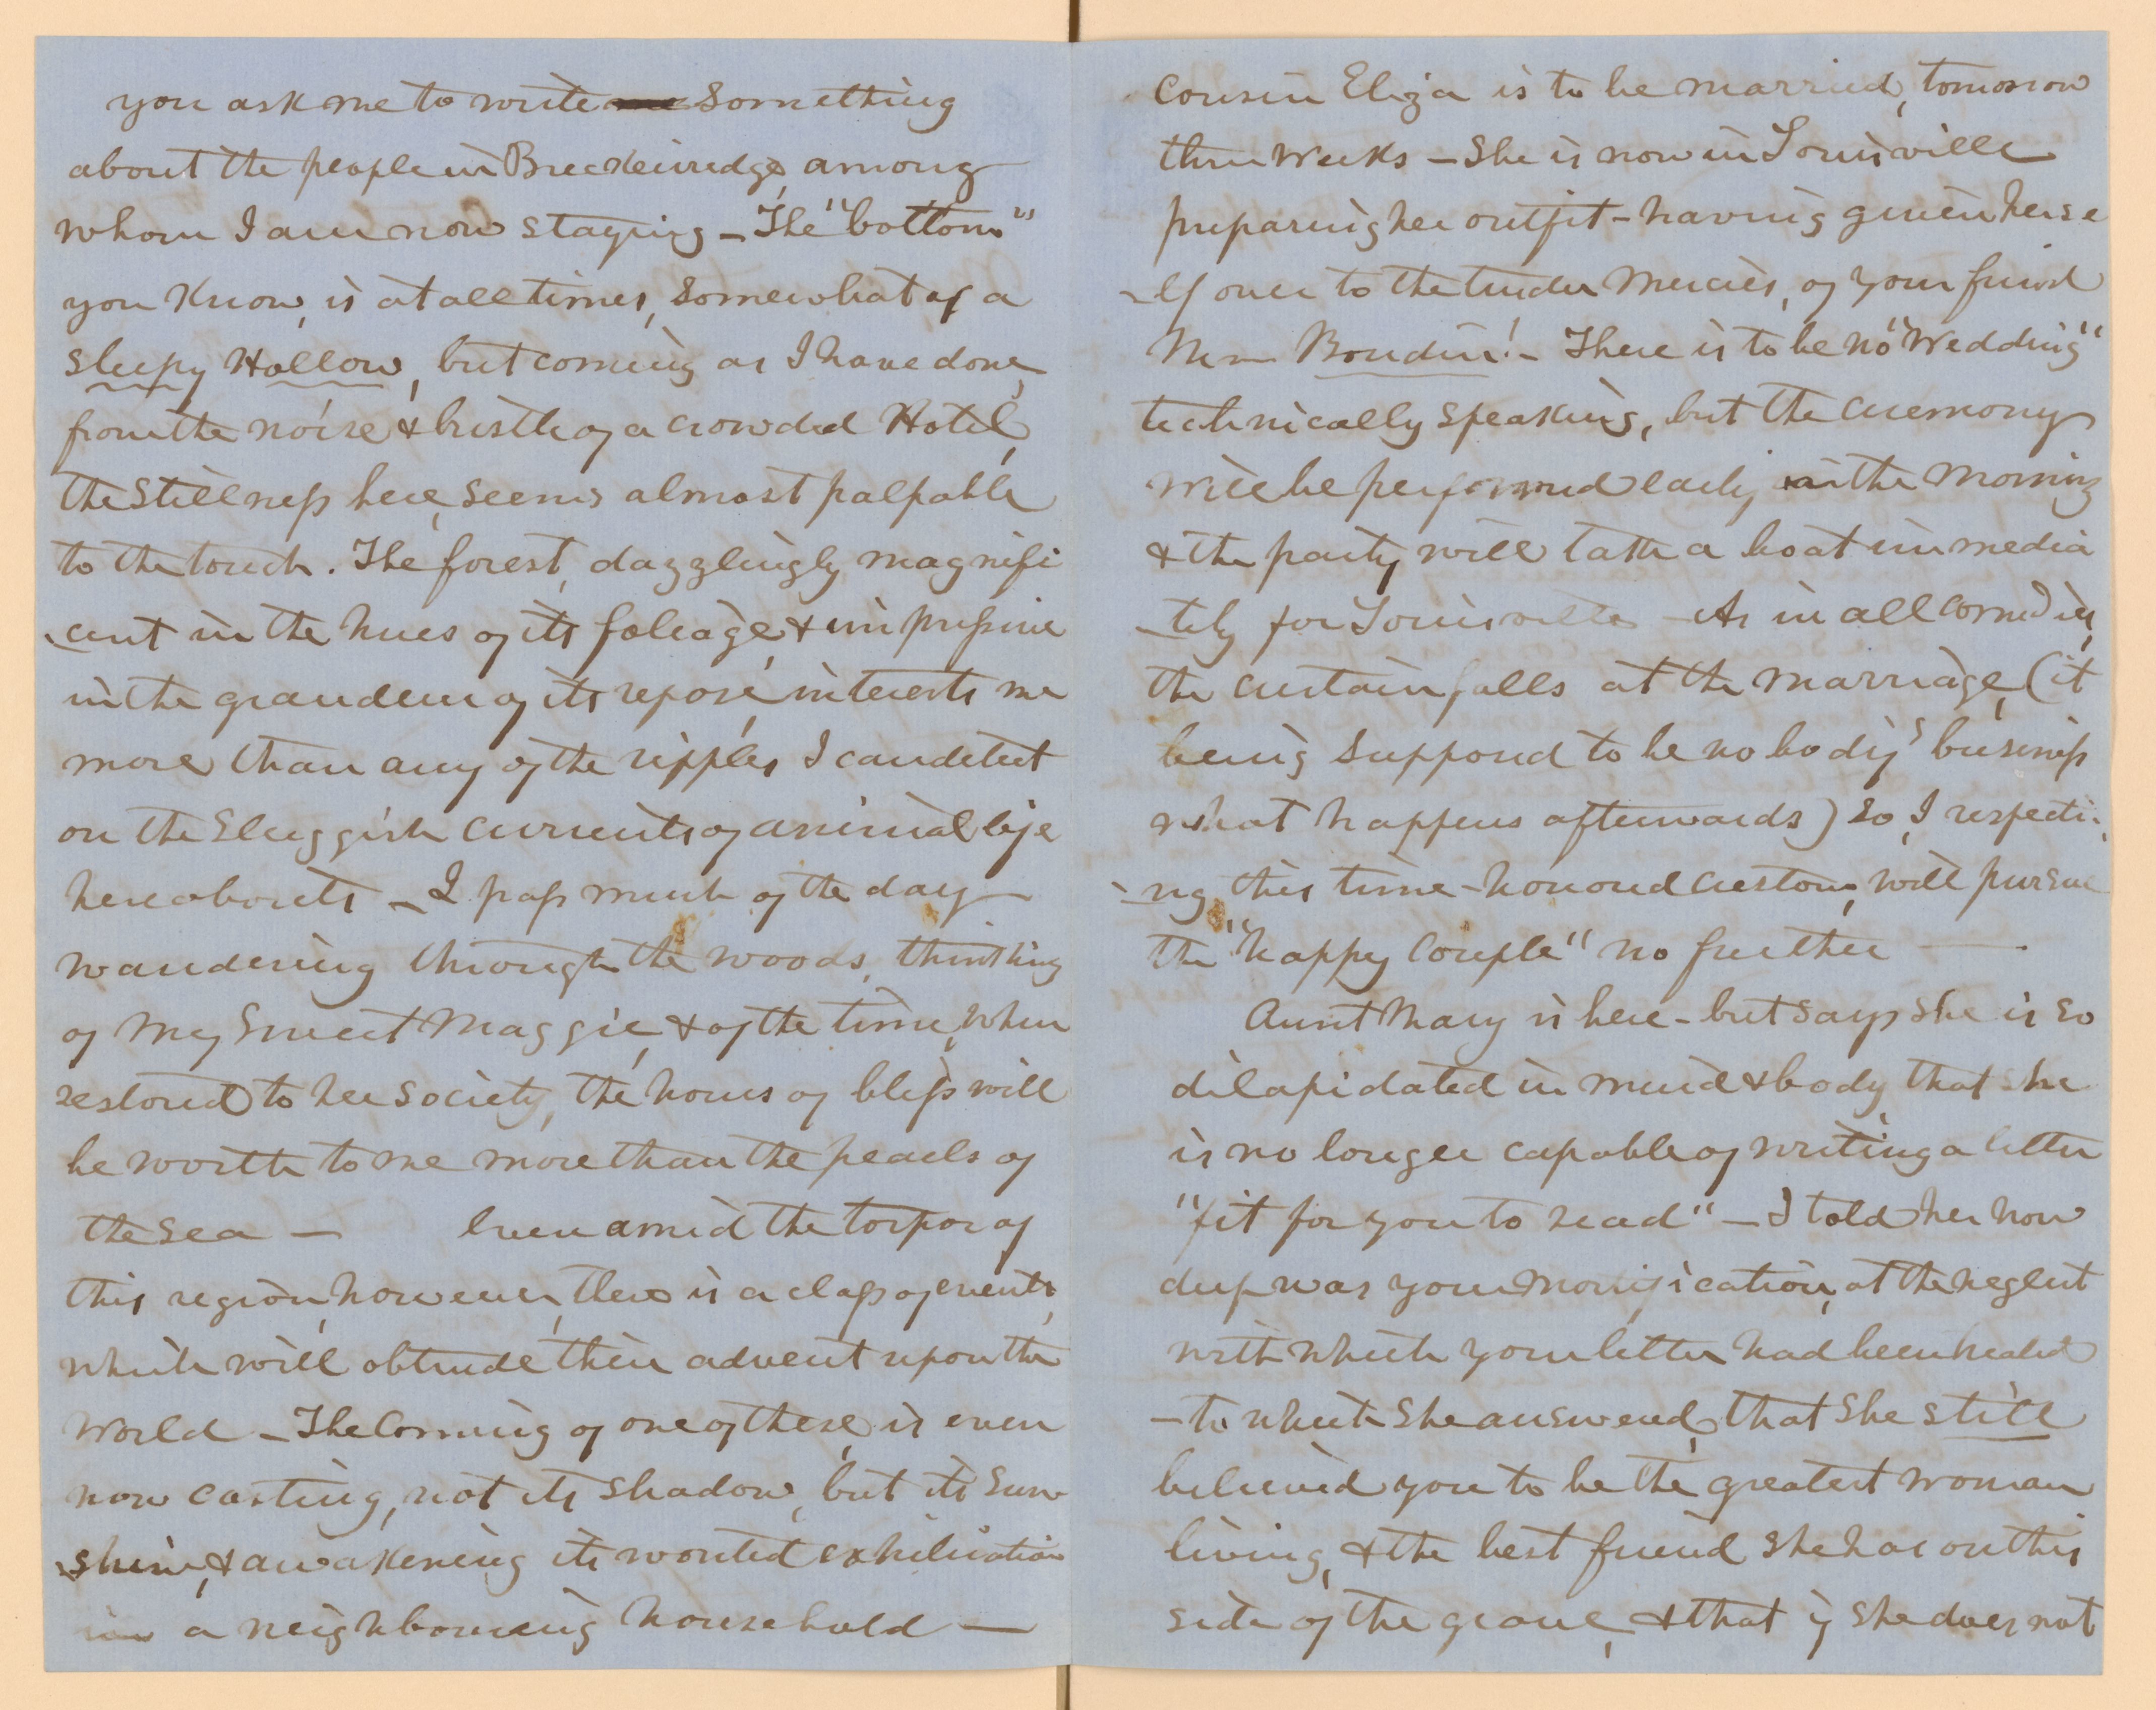 you ask me to write something
about the people in Breckinridge, among
whom I am now staying – The "bottom"
you know, is at all times, somewhat of a
sleepy Hollow, but coming as I have done,
from the noise & bustle of a crowded Hotel,
the stillness here, seems almost palpable
to the touch. The forest, dazzlingly magnifi
-cent in the hues of its foliage, & impressive
in the grandeur of its repose, interests me
more than any of the ripples I can detect
on the sluggish currents of animal life
hereabouts – I pass much of the day
wandering through the woods, thinking
of my sweet Maggie, & of the time, when
restored to her society, the hours of bliss will
be worth to me more than the pearls of
the sea – Even amid the torpor of
this region, however, there is a class of events,
which will obtrude their advent upon the
world – The coming of one of these, is even
now casting, not its shadow, but its sun
-shine, & awakening its wonted exhiliration
in a neighbouring household –
Cousin Eliza is to be married, tomorrow
three weeks – She is now in Louisville
preparing her outfit – having given herse
-lf over to the tender mercies, of your friend
Mm Boudin! – There is to be no "Wedding"
technically speaking, but the ceremony
will be performed early in the morning
& the party will take a boat immedia
-tely for Louisville – As in all comedies,
the curtain falls at the marriage, (it
being supposed to be nobody's business
what happens afterwards) so, I respecti
-ng this time-honored custom, will pursue
the "happy couple" no further –.
Aunt Mary is here – but says she is so
dilapidated in mind & body that she
is no longer capable of writing a letter
"fit for you to read" – I told her how
deep was your morification, at the neglect
with which your letter had been treated
– to which she answered, that she still
believed you to be the greatest woman
living, & the best friend she has on this
side of the grave, & that if she does not